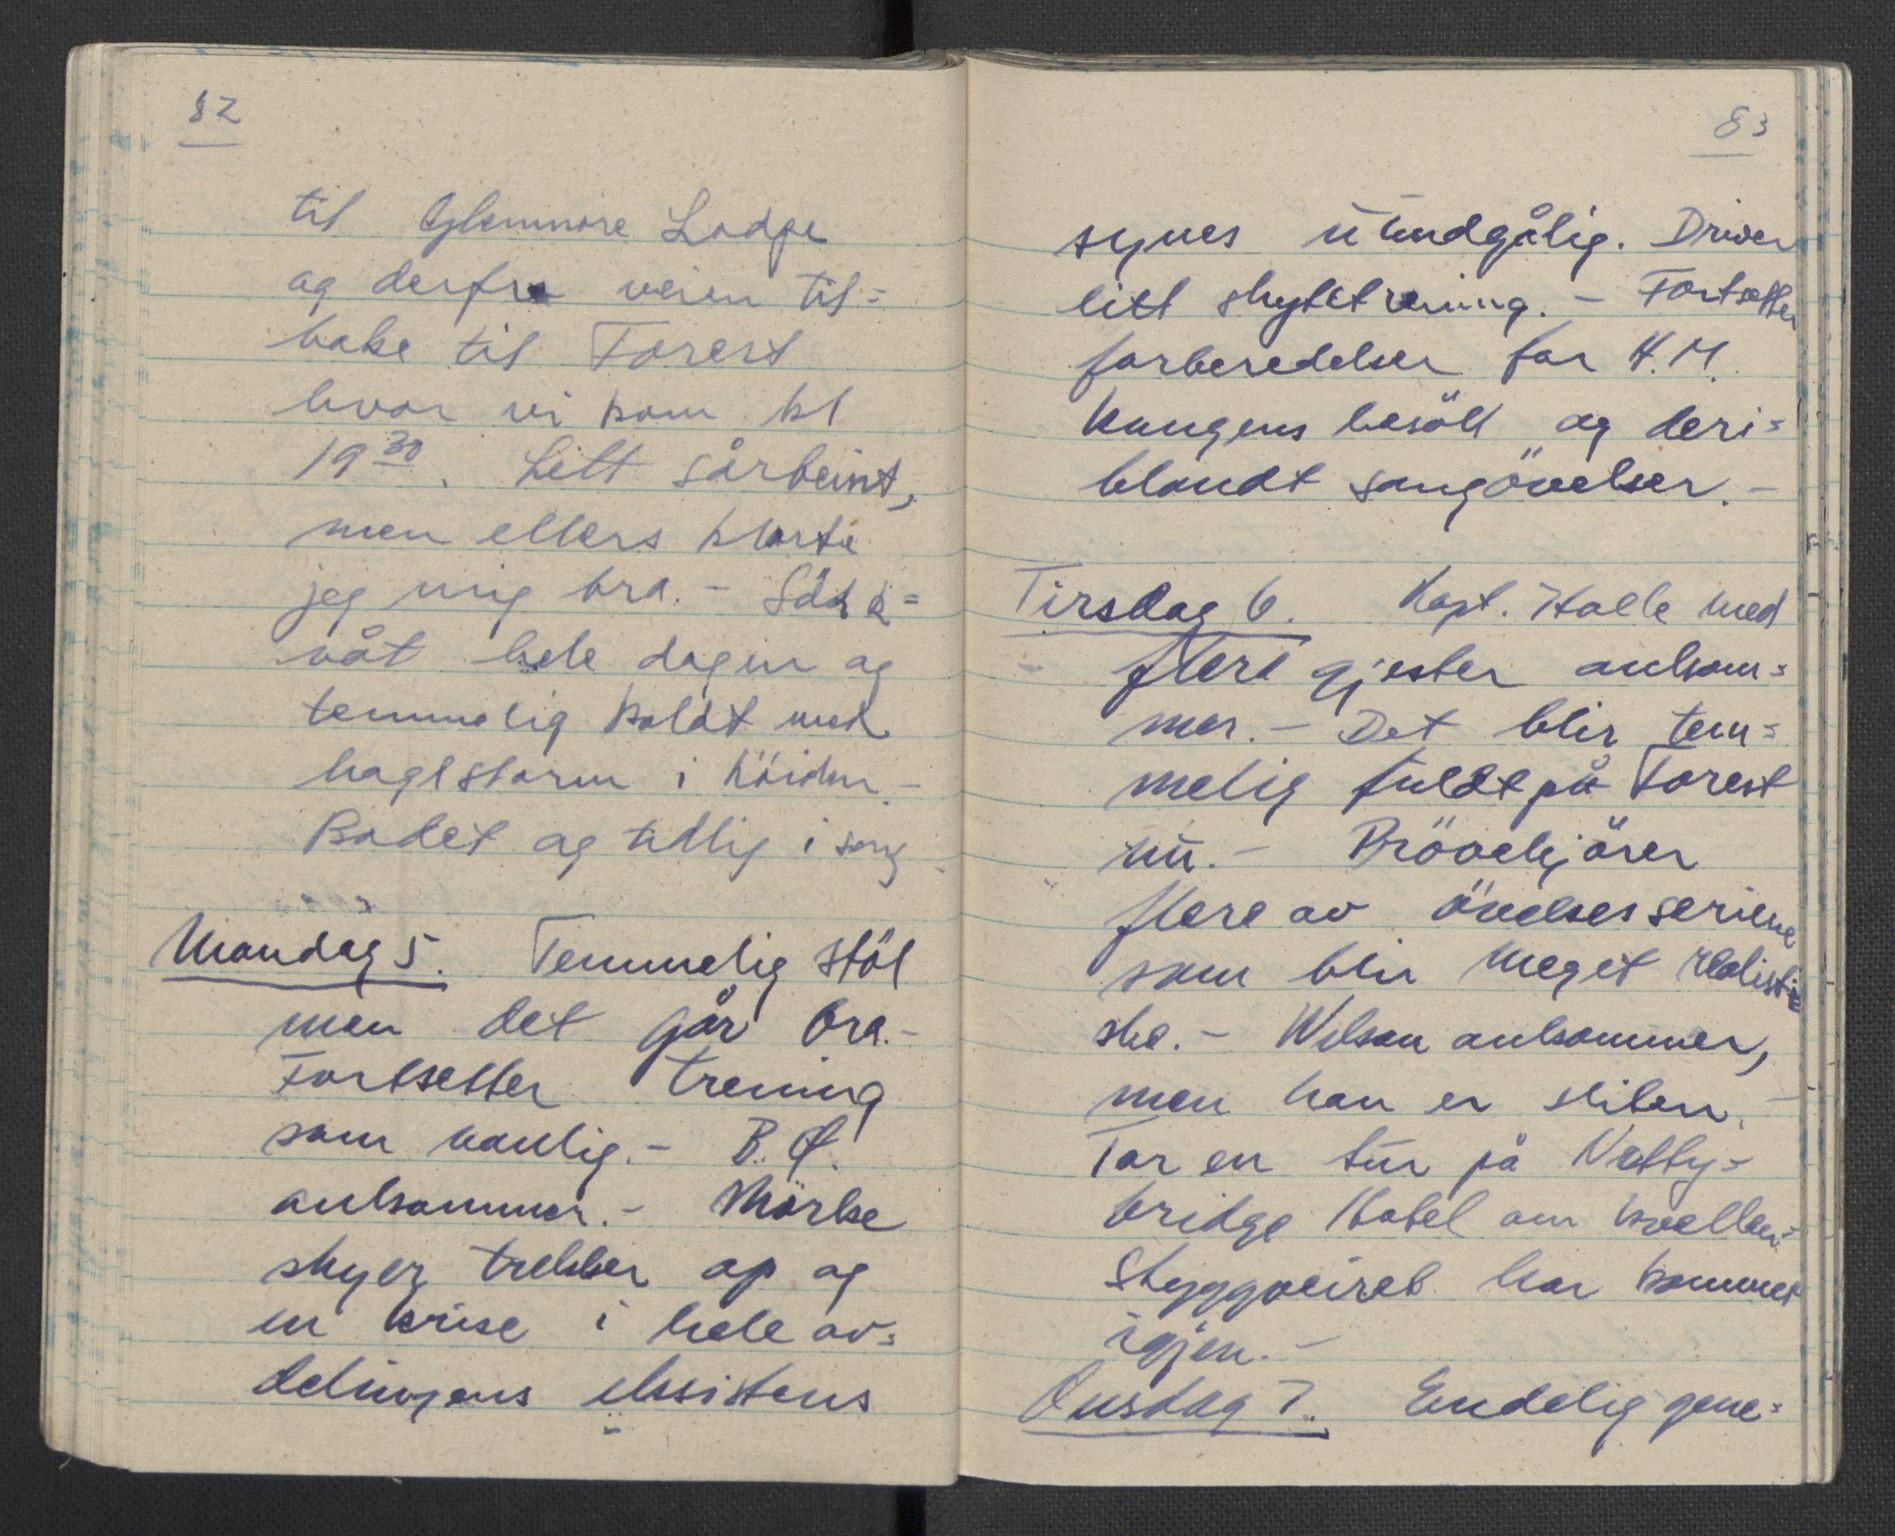 82
til Glenmore Lodge
og derfra veien til=
bake til Forest
hvor vi kom kl
19 30. Litt sårbeint,
men ellers klarte
jeg mig bra. -
våt hele dagen og
temmelig koldt med
haglstorm i höiden. -
Badet og tidlig i seng.
Mandag 5. Temmelig stöl
men det går bra. -
Fortsetter trening
som vanlig. - B. Ö.
ankommer. - Mörke
skyer trekker op og
en krise i hele av=
delingens eksistens
83
synes uundgålig. Driver
litt skytetrening. - Fortsetter
forberedelser for H.M.
Kongens besök og deri=
blandt sangövelser. -
Tirsdag 6. Kapt. Holle med
flere gjester ankom=
mer. - Det blir tem=
melig fuldt på Forest
nu. - Prövekjörer
flere av övelsesseriene
som blir meget realisti=
ske. - Wilson ankommer,
men han er sliten. -
Tar en tur på Nethy=
bridge Hotel om kvellen. -
Styggveiret har kommet
igjen. -
Onsdag 7. Endelig gene=